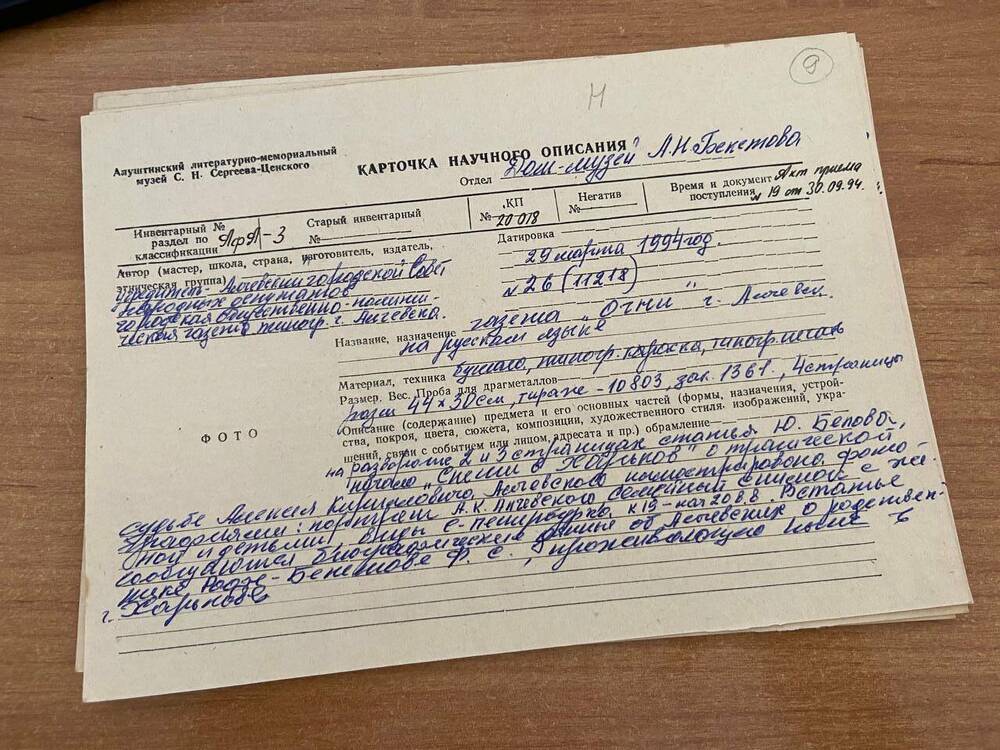 9
Н
Алуштинский литературно-мемориальный
музей С. Н. Сергеева-Ценского
КАРТОЧКА НАУЧНОГО ОПИСАНИЯ
Отдел „Дом-музей" А.Н Бекетова
Инвентарный №
раздел по
классификации АфА-3
Старый инвентарный
№
КП
№ 20 018
Негатив
№
Время и документ Акт приема
поступления № 19 от 30.09.94.г.
Автор (мастер, школа, страна, изготовитель, издатель,
этническая группа)
учредитель - Алчевский городской Совет
народных депутатов
городская общественно-полити-
ческая газета типогр. г. Алчевска.
Датировка
29 марта 1994 год.
№ 26 (11218)
Название, назначение газета „Огни" г. Алчевск.
на русском языке
Материал, техника бумага, типогр. краска, типогр. печать
Размер. Вес. Проба для драгметаллов
разм 44 х 30 см, тираж - 10803, зак. 1361, 4 страницы
Описание (содержание) предмета и его основных частей (формы, назначения, устрой-
ства, покроя, цвета, сюжета, композиции, художественного стиля. изображений, укра-
шений, связи с событием или лицом, адресата и пр.) обрамление
ФОТО
на развороте 2 и 3 страницах статья Ю. Беловой,
начало в Харьков" о трагической
судьбе Алексея Кирилловича, Алчевского иллюстрирована фото-
графиями: портрет А.К. Алчевского семейный снимок с же-
ной и детьми, виды с-петербурга к 19 - нач 20 в.в. В статье
сообщаются биографические данные об Алчевских о родствен-
нике Ф. С., проживающую ныне в
г. Харькове